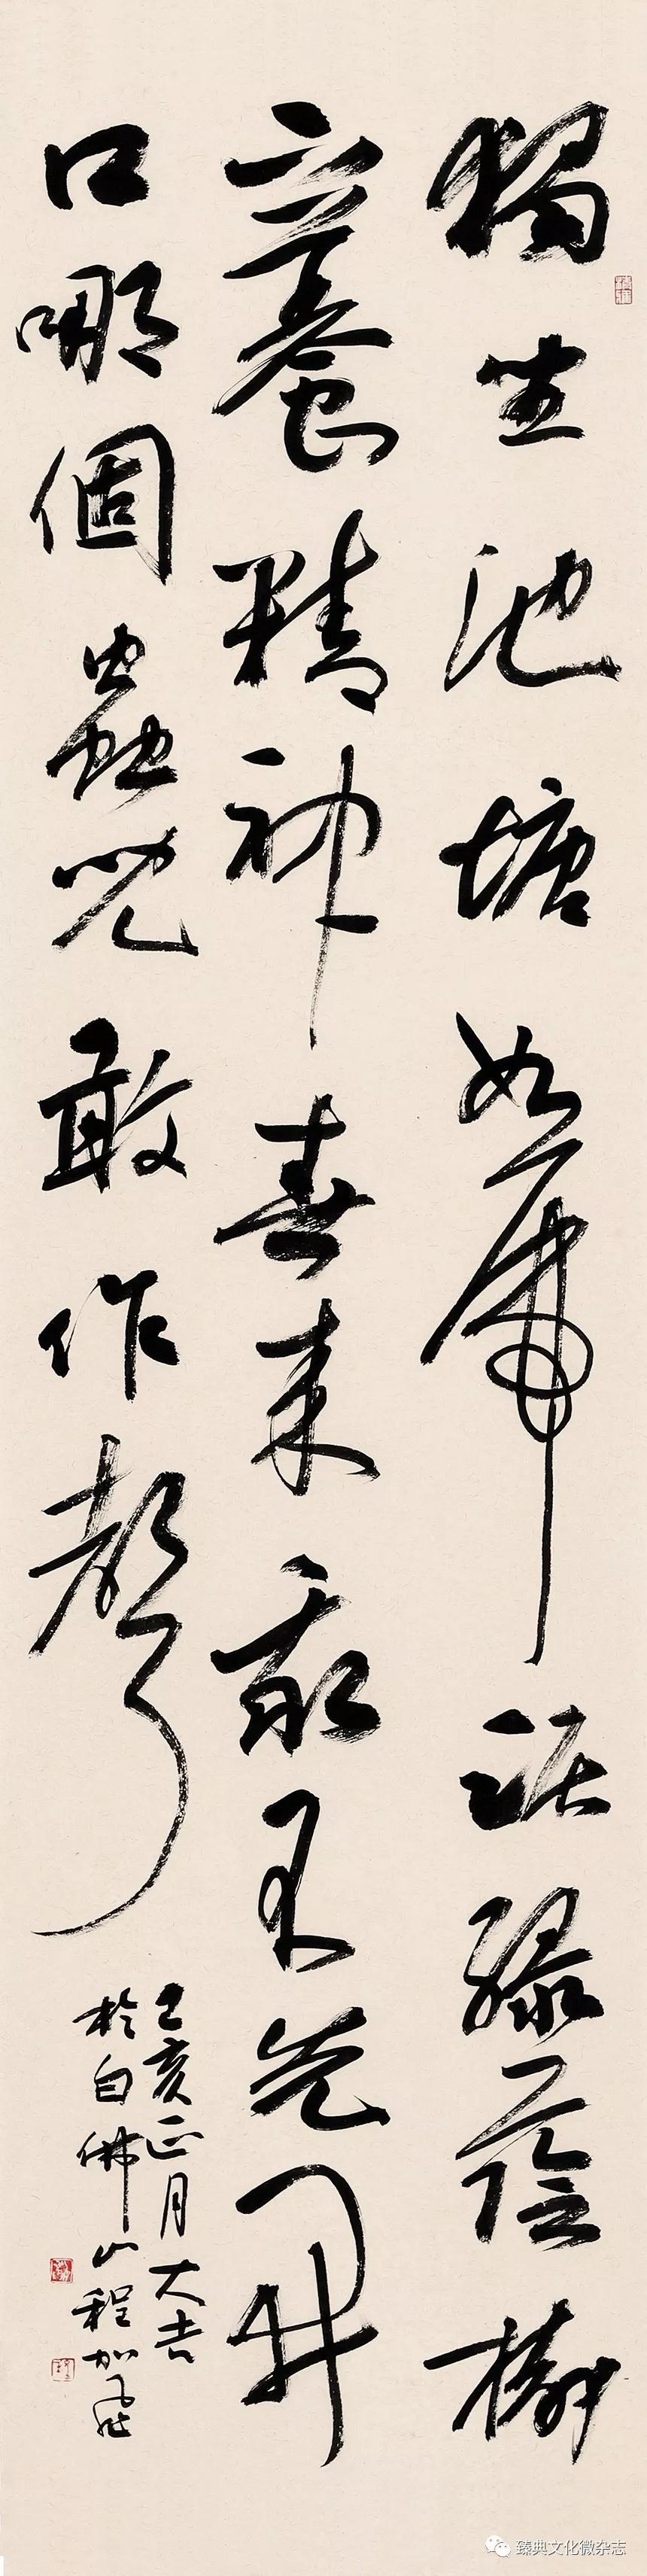 独坐池塘如虎踞绿荫树
下养精神春来我不先开
口哪個蟲兒敢作聲
己亥正月大吉
於白佛山程加
臻典文化微杂志